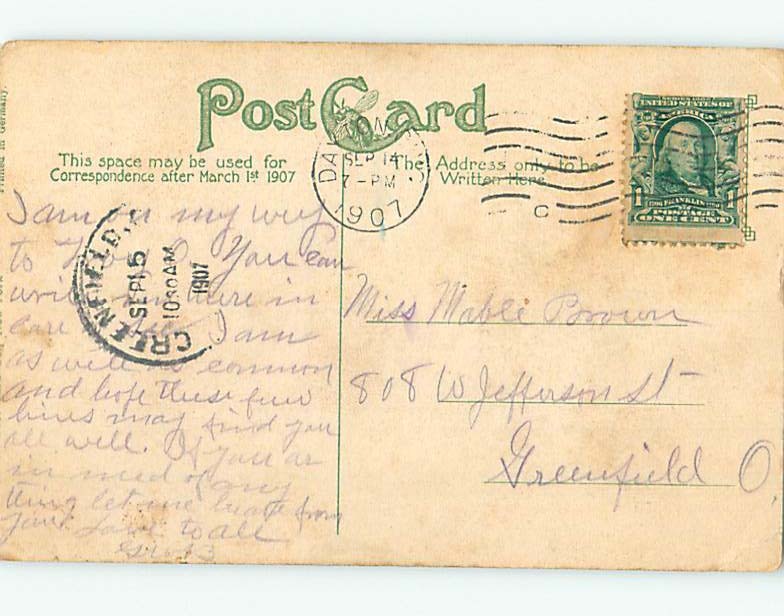 Printed in Germany.
Post Card
This space may be used for
Correspondence after March 1st 1907
The Address only to be
Written Here
DAYTON
SEP 14
7-PM
1907
C
SERIES 1902
UNITED STATES OF
1 FRANKLIN 1
POSTAGE
ONE CENT
GREENFIELD,
SEP 15
1030AM
1907
I am on my way
to O. You can
write me there in
care I am
as well as common
and hope these few
lines may find you
all well. If you ar
in need of any
thing let me hear from
you Love to all
Miss Mable Brown
808 W Jefferson St
Greenfield O,